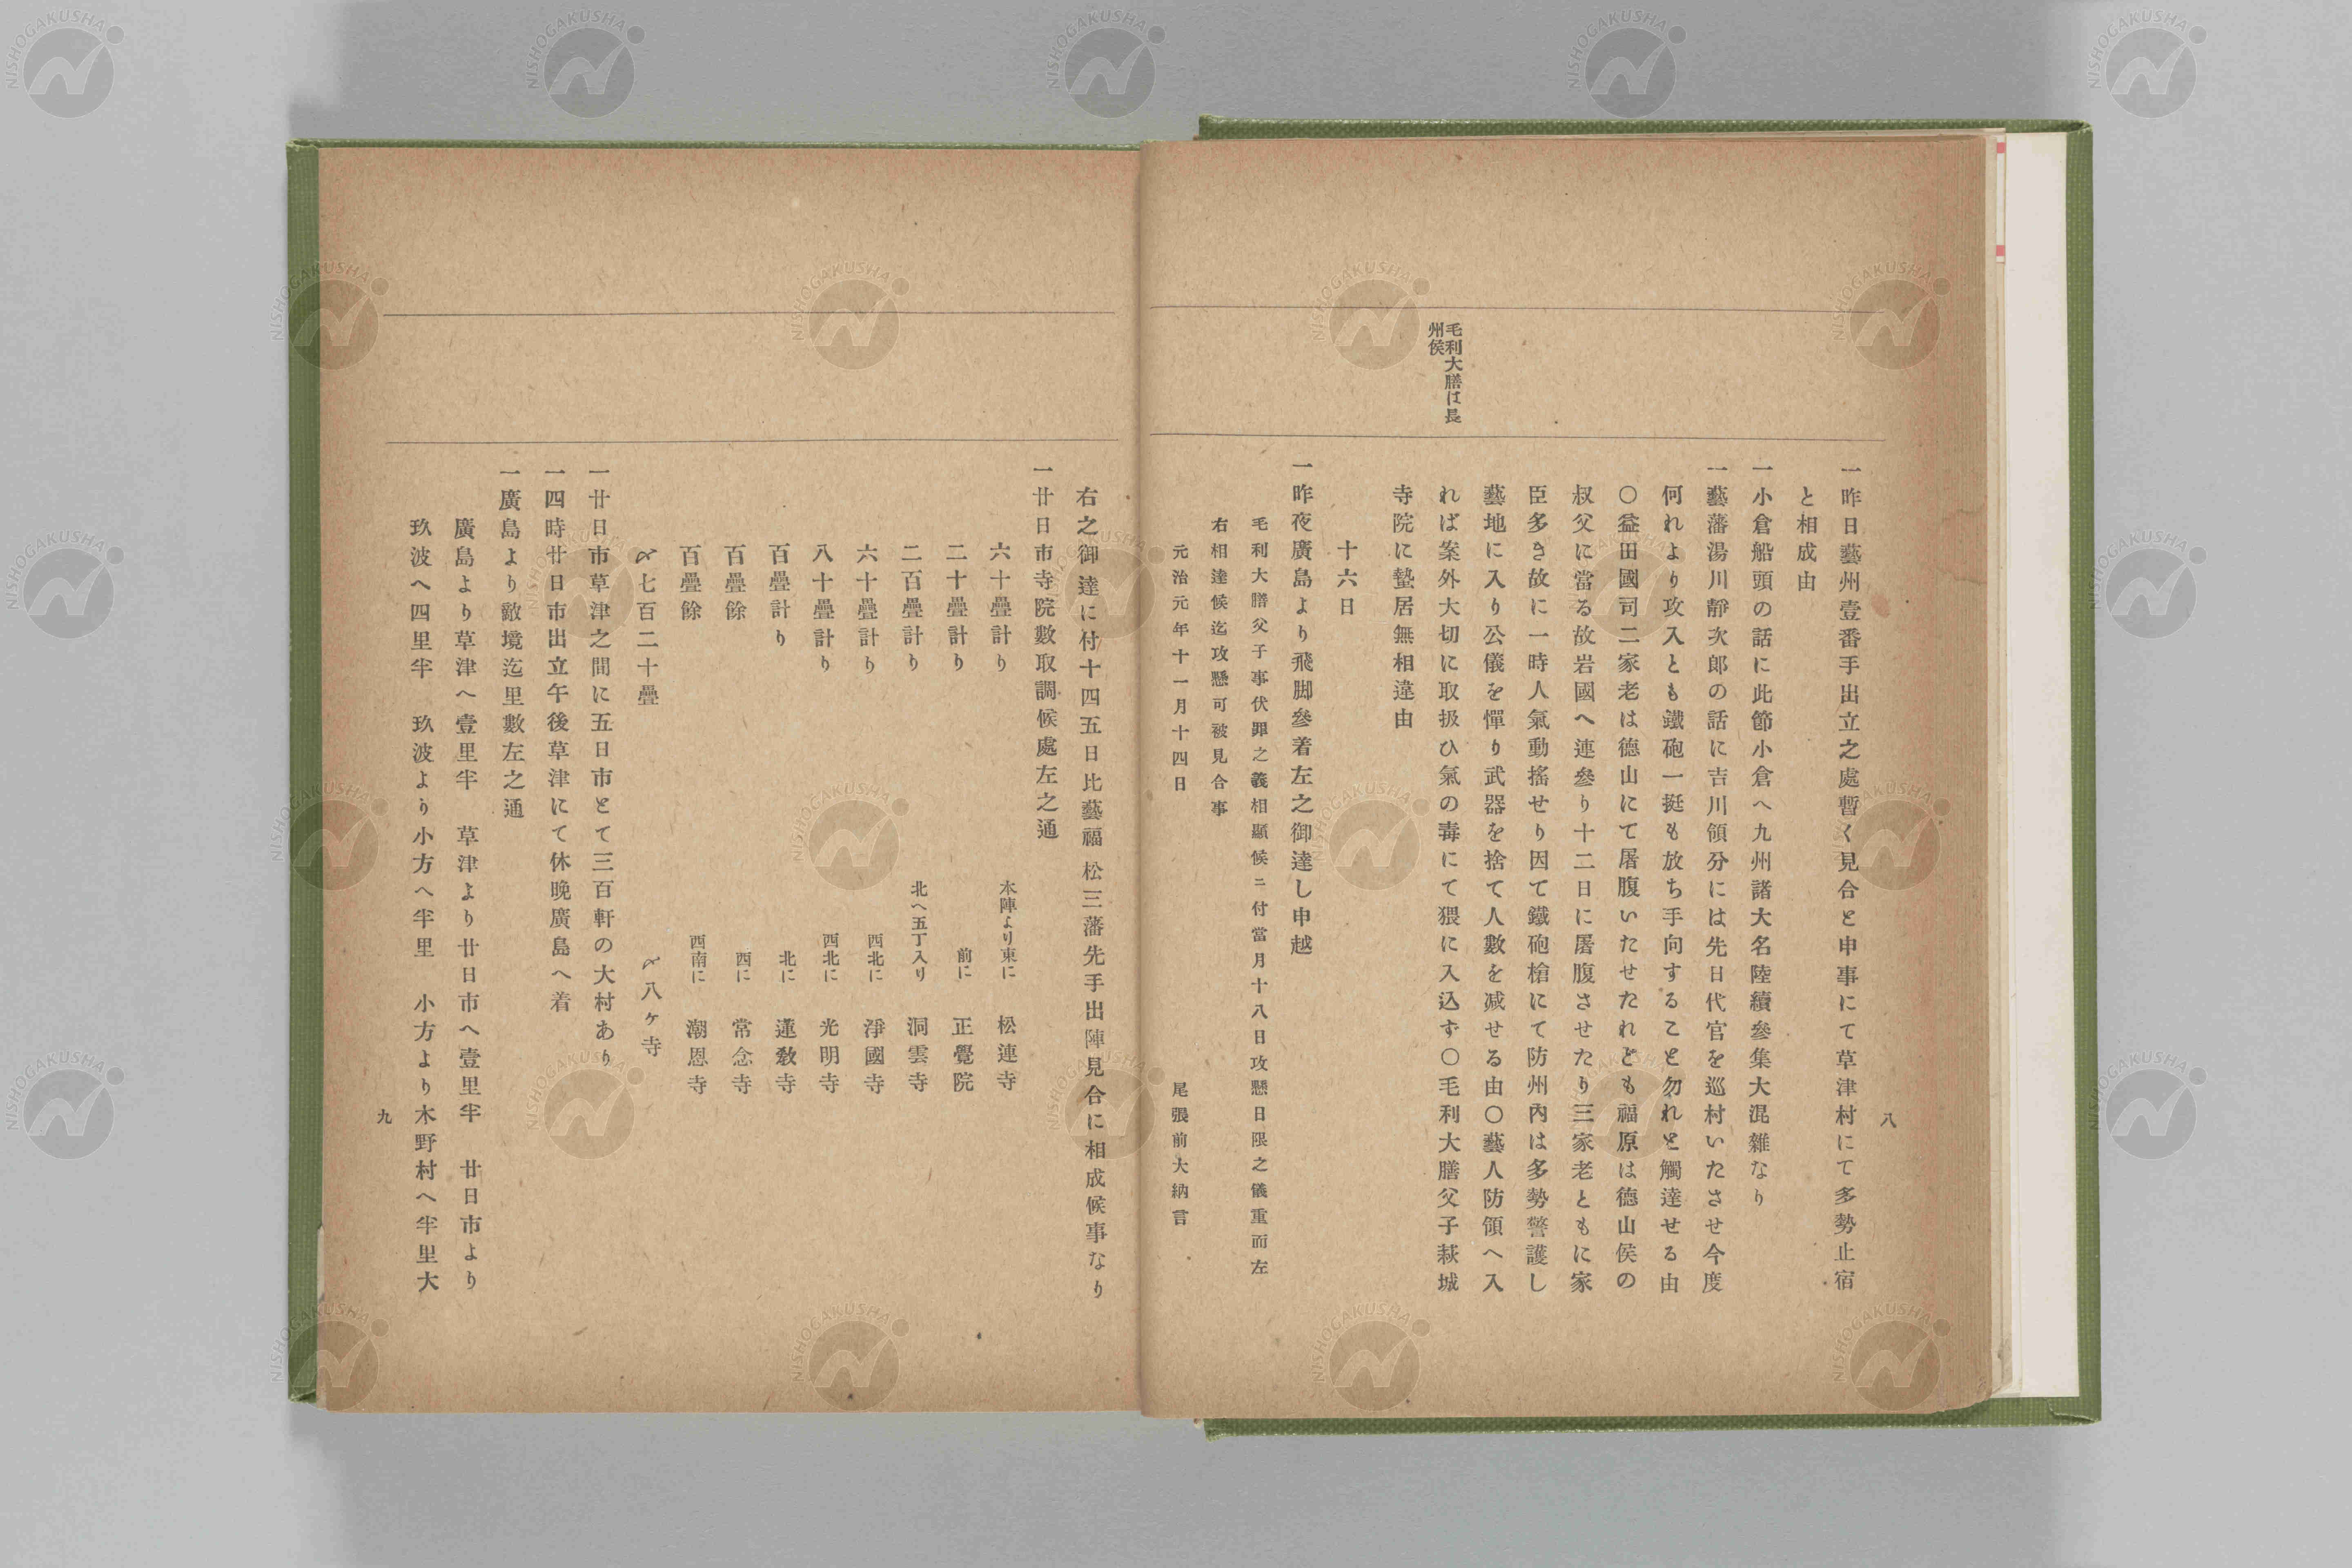 八
一昨日藝州壹番手出立之處暫く見合と申事にて草津村にて多勢止宿
と相成由
一小倉船頭の話に此節小倉へ九州諸大名陸續參集大混雜なり
一藝藩湯川靜次郎の話に吉川領分には先日代官を巡村いたさせ今度
何れより攻入とも鐵砲一挺も放ち手向すること勿れと觸達せる由
〇益田國司二家老は德山にて屠腹いたせたれども福原は德山侯の
叔父に當る故岩國へ連參り十二日に屠腹させたり三家老ともに家
臣多き故に一時人氣動搖せり因て鐵砲槍にて防州內は多勢警護し
藝地に入り公儀を憚り武器を捨て人數を減せる由〇藝人防領へ入
れば案外大切に取扱ひ氣の毒にて猥に入込ず〇毛利大膳父子萩城
寺院に蟄居無相違由
毛利大膳は長
州侯
十六日
一昨夜廣島より飛脚參着左之御達し申越
毛利大膳父子事伏罪之義相顯候ニ付當月十八日攻懸日限之儀重而左
右相達候迄攻懸可被見合事
元治元年十一月十四日 尾張前大納言
右之御達に付十四五日比藝福松三藩先手出陣見合に相成候事なり
一廿日市寺院數取調候處左之通
六十疊計り 本陣より東に 松連寺
二十疊計り 前に 正覺院
二百疊計り 北へ五丁入り 洞雲寺
六十疊計り 西北に 淨國寺
八十疊計り 西北に 光明寺
百疊計り 北に 蓮敎寺
百疊餘 西に 常念寺
百疊餘 西南に 潮恩寺
〆七百二十疊 〆八ヶ寺
一廿日市草津之間に五日市とて三百軒の大村あり
一四時廿日市出立午後草津にて休晩廣島へ着
一廣島より敵境迄里數左之通
廣島より草津へ壹里半 草津より廿日市へ壹里半 廿日市より
玖波へ四里半 玖波より小方へ半里 小方より木野村へ半里大
九
NISHOGAKUSHA